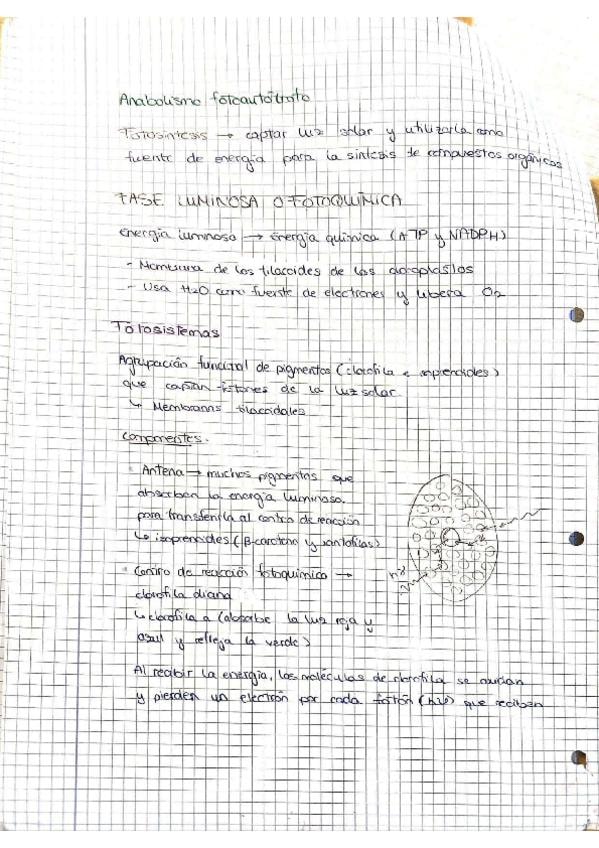 Anabolismo fotoautótrofo
Fotosíntesis → captar luz solar y utilizarla como
fuente de energía para la síntesis de compuestos orgánicos
FASE LUMINOSA O FOTOQUÍMICA
Energía luminosa → Energía química (ATP y NADPH)
- Membrana de los tilacoides de los cloroplastos
- Usa H₂O como fuente de electrones y libera O₂
Fotosistemas
Agrupación funcional de pigmentos (clorofila e isoprenoides)
que captan fotones de la luz solar
↳ Membranas tilacoidales
Componentes.
· Antena → muchos pigmentos que
absorban la energía luminosa.
para transferirla al centro de reacción
↳ isoprenoides (β-caroteno y xantofilas)
· Centro de reacción fotoquímico →
clorofila diana
↳ clorofila a (absorbe la luz roja y
azul y refleja la verde)
Al recibir la energía, las moléculas de clorofila se oxidan
y pierden un electrón por cada fotón (hν) que reciben